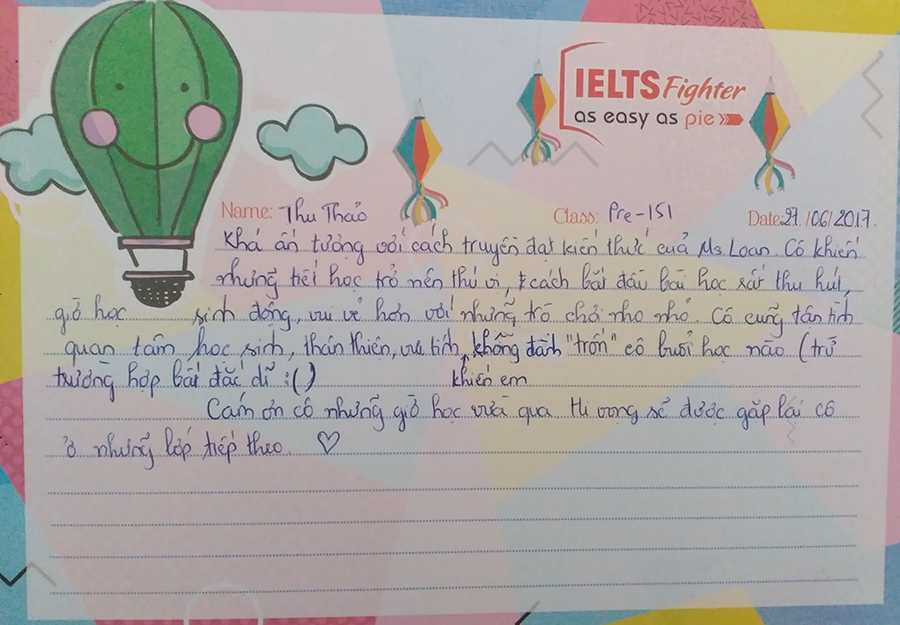 IELTS Fighter
as easy as pie
Name: Thu Thảo
Class: Pre-151
Date: 27/06/2017.
Khá ấn tượng với cách truyền đạt kiến thức của Ms. Loan. Cô khiến
những tiết học trở nên thú vị, cách bắt đầu bài học rất thu hút,
giờ học sinh động, vui vẻ hơn với những trò chơi nho nhỏ. Cô cũng tận tình
quan tâm học sinh, thân thiện, vui tính, không đành "trốn" cô buổi học nào (trừ
khiến em
trường hợp bất đắc dĩ :( )
Cảm ơn cô những giờ học vừa qua. Hi vọng sẽ được gặp lại cô
ở những lớp tiếp theo. ♡